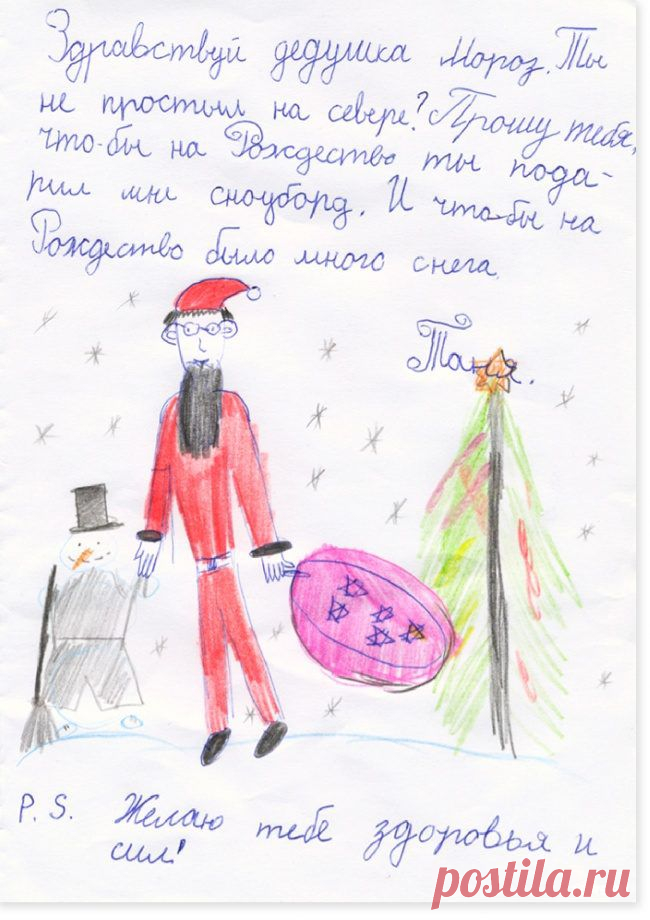 Здравствуй дедушка Мороз. Ты
не простыл на севере? Прошу тебя,
что-бы на Рождество ты пода-
рил мне сноуборд. И что-бы на
Рождество было много снега.
Таня.
P. S. Желаю тебе здоровья и
сил!
postila.ru